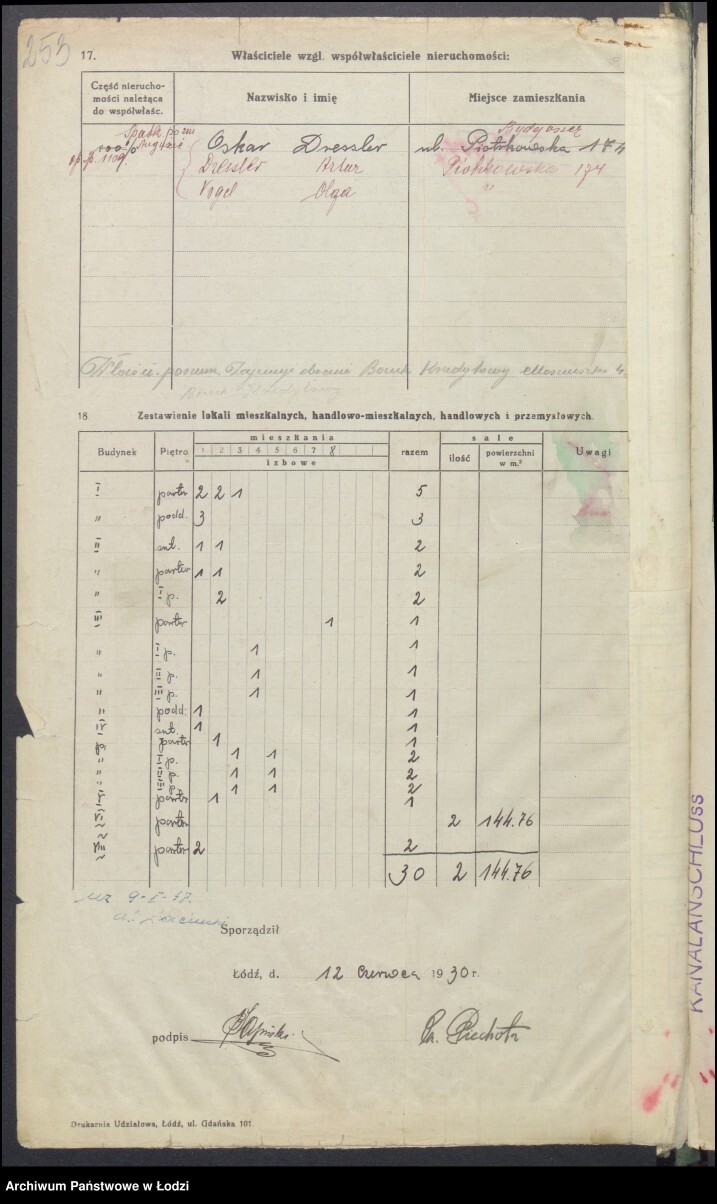 253
17. Właściciele wzgl. współwłaściciele nieruchomości:
Część nierucho-
mości należąca
do współwłaśc.
Nazwisko i imię
Miejsce zamieszkania
Bydgoszcz
Oskar Dressler ul. Piotrkowska 174
Dressler Artur Piotrkowska 174
Vogel Olga "
Kredytowy
18. Zestawienie lokali mieszkalnych, handlowo-mieszkalnych, handlowych i przemysłowych.
Budynek Piętro mieszkania razem sale Uwagi
1 2 3 4 5 6 7 8
izbowe
ilość powierzchni
w m.²
I parter 2 2 1 5
" podd. 3 3
II sut. 1 1 2
" parter 1 1 2
" I p. 2 2
III parter 1 1
" I p. 1 1
" II p. 1 1
" III p. 1 1
" podd. 1 1
IV sut. 1 1
parter 1 1
" I p. 1 1 2
" II p. 1 1 2
" III p. 1 1 2
parter 1 1
parter 2 144.76
parter 2 2
30 2 144.76
Sporządził
Łódź, d. 12 Czerwca 1930 r.
podpis
Drukarnia Udziałowa, Łódź, ul. Gdańska 101
KANALANSCHLUSS
Archiwum Państwowe w Łodzi